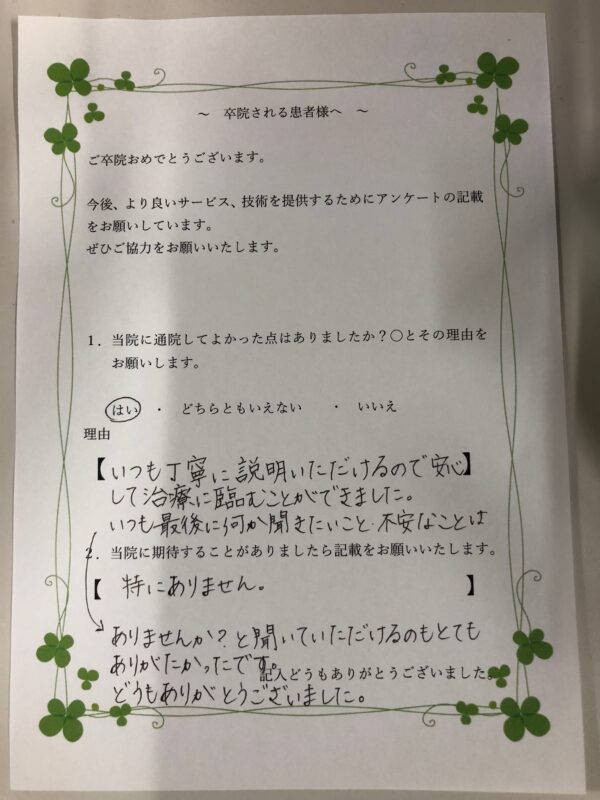 ～　卒院される患者様へ　～
ご卒院おめでとうございます。
今後、より良いサービス、技術を提供するためにアンケートの記載
をお願いしています。
ぜひご協力をお願いいたします。
１．当院に通院してよかった点はありましたか？〇とその理由を
お願いします。
はい　・　どちらともいえない　・　いいえ
理由
【いつも丁寧に説明いただけるので安心】
して治療に臨むことができました。
いつも最後に何か聞きたいこと・不安なことは
２．当院に期待することがありましたら記載をお願いいたします。
【　特にありません。　】
ありませんか？と聞いていただけるのもとても
ありがたかったです。
記入どうもありがとうございました。
どうもありがとうございました。